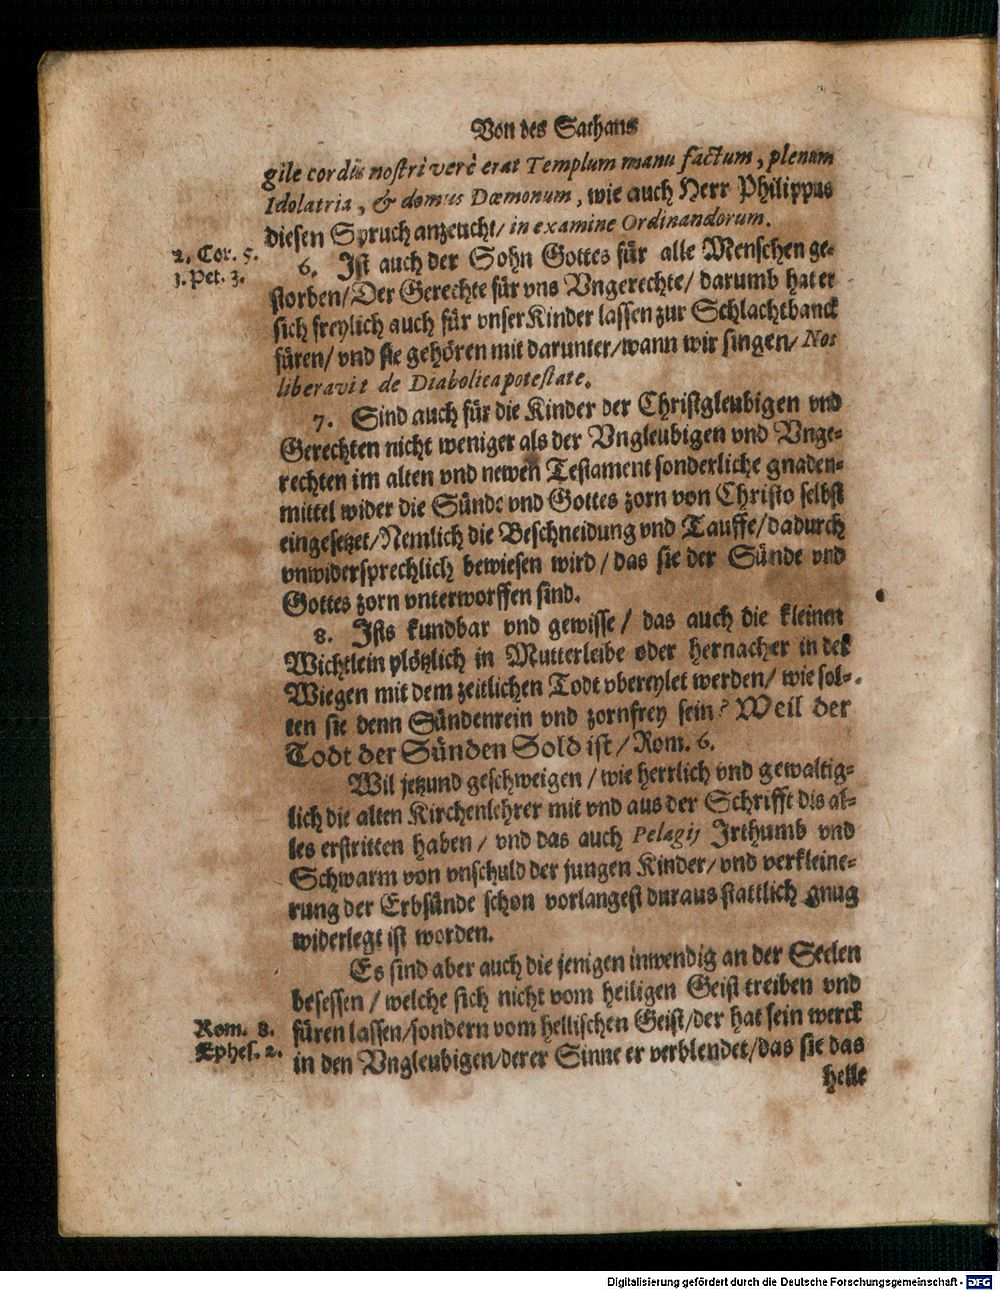 Von des Sathans
gile cordis nostri verè erat Templum manu factum, plenum
Idolatria, & domus Dæmonum, wie auch Herr Philippus
diesen Spruch anzeucht/ in examine Ordinandorum.
2. Cor. 5.
1. Pet. 3.
6. Ist auch der Sohn Gottes für alle Menschen ge-
storben/ Der Gerechte für vns Vngerechte/ darumb hat er
sich freylich auch für vnser Kinder lassen zur Schlachtbanck
füren/ vnd sie gehören mit darunter/ wann wir singen/ Nos
liberavit de Diabolica potestate.
7. Sind auch für die Kinder der Christgleubigen vnd
Gerechten nicht weniger als der Vngleubigen vnd Vnge-
rechten im alten vnd newen Testament sonderliche gnaden-
mittel wider die Sünde vnd Gottes zorn von Christo selbst
eingesetzet/ Nemlich die Beschneidung vnd Tauffe/ dadurch
vnwidersprechlich bewiesen wird/ das sie der Sünde vnd
Gottes zorn vnterworffen sind.
8. Ists kundbar vnd gewisse/ das auch die kleinen
Wichtlein plötzlich in Mutterleibe oder hernacher in der
Wiegen mit dem zeitlichen Todt vbereylet werden/ wie sol-
ten sie denn Sündenrein vnd zornfrey sein? Weil der
Todt der Sünden Sold ist/ Rom. 6.
Wil jetzund geschweigen/ wie herrlich vnd gewaltig-
lich die alten Kirchenlehrer mit vnd aus der Schrifft dis al-
les erstritten haben/ vnd das auch Pelagij Irthumb vnd
Schwarm von vnschuld der jungen Kinder/ vnd verkleine-
rung der Erbsünde schon vorlangest daraus stattlich gnug
widerlegt ist worden.
Es sind aber auch die jenigen inwendig an der Seelen
besessen/ welche sich nicht vom heiligen Geist treiben vnd
Rom. 8.
Ephes. 2.
füren lassen/ sondern vom hellischen Geist/ der hat sein werck
in den Vngleubigen/ derer Sinne er verblendet/ das sie das
helle
Digitalisierung gefördert durch die Deutsche Forschungsgemeinschaft - DFG